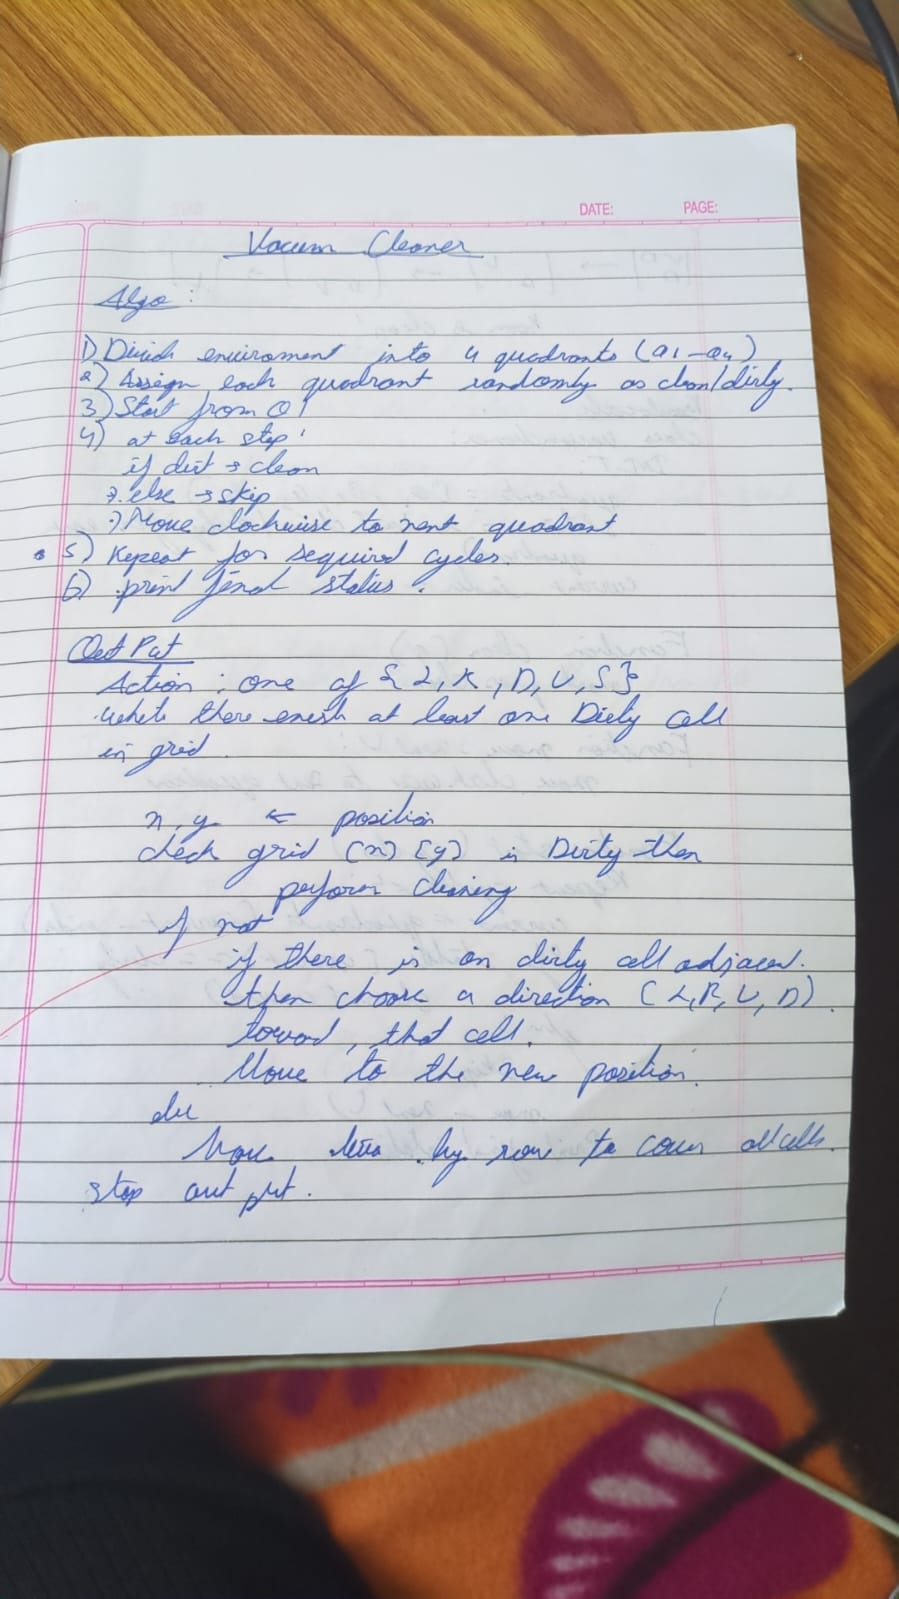 DATE: PAGE:
Vacum Cleaner
Algo :
1) Divide enviroment into 4 quadrants (Q1-Q4)
2) Assign each quadrant randomly as clean/dirty.
3) Start from Q1
4) at each step:
if dirt → clean
→ else → skip
→ Move clockwise to next quadrant
5) Repeat for required cycles.
6) print final status.
Out Put
Action : one of { L, R, D, U, S }
while there exist at least one Dirty cell
in grid.
x, y ← position
check grid [x] [y] is Dirty then
perform cleaning
if not
if there is an dirty cell adjacent.
then choose a direction (L, R, U, D).
toward, that cell.
Move to the new position.
else
Move by row to cover all cells.
stop out put.